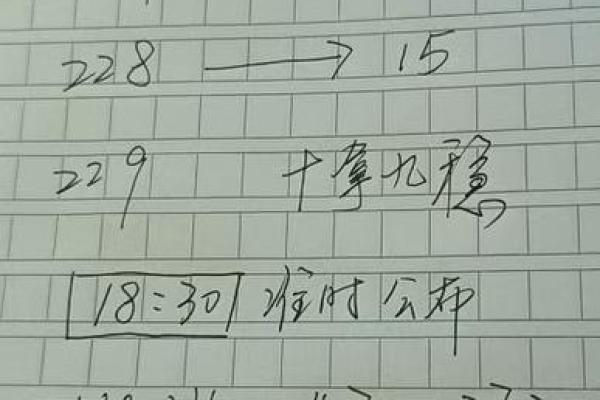 228 → 15
229 十拿九稳
18:30 准时公布